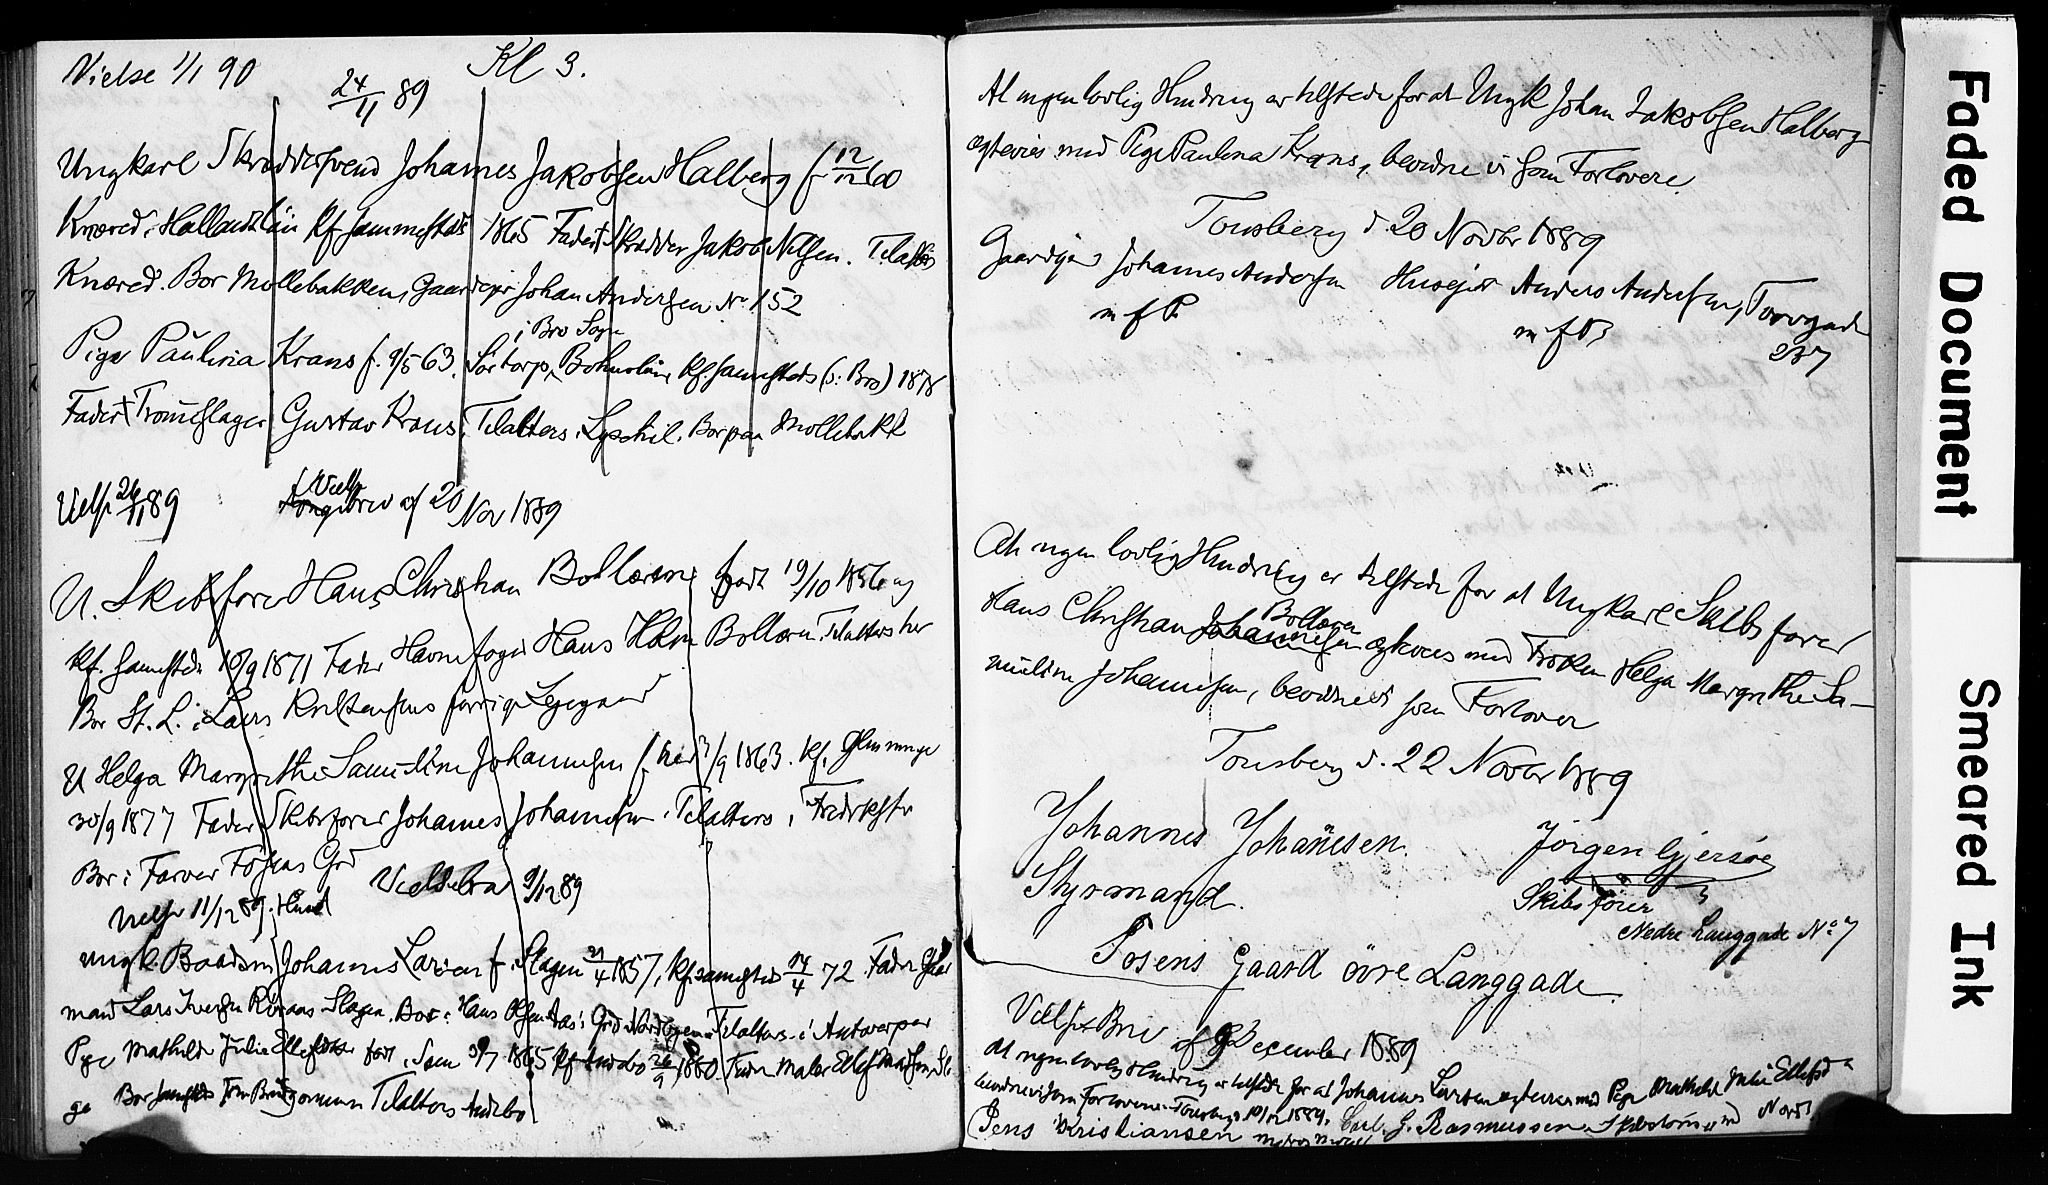 Vielse 1/1 90
24/11 89
Kl 3.
Ungkarl Skræddersvend Johannes Jakobsen Halberg f 12/12 60
Knæred i Hallandslän Kf sammesteds 1865 Fader Skrædder Jakob Nilsen. Tilalters
Knæred. Bor Møllebakken, Gaardejer Johan Andersen No 152
i Bro Sogn
Pige Paulina Krans f. 9/5 63. Sörtorp, Bohuslän, Kf. samesteds (o: Bro) 1878
Fader Tromeslager Gustav Krans. Tilalters i Lysekil. Bor paa Møllebakk
Vielse 26/11 89
Vielse
brev af 20 Nov 1889
U. Skibsfører Hans Christian Bollæren født 19/10 1856 og
Kf. samesteds 10/9 1871 Fader Havnefoged Hans Holm Bollæren. Tilalters her
Bor St. L. i Lars Knutsens forrige Gaard
U Helga Margrethe Samuline Johannesen f her /9 1863. Kf. Glemminge
30/9 1877 Fader Skibsfører Johannes Johannesen. Tilalters i Fredrikst
Bor i Farver Grd
Vielsesbrev 9/12 89
Vielse 11/12 89.
Ungk Baadsm Johannes Larsen f. i Slagen 21/4 1857, Kf. samesteds 14/4 72. Fader Gaar
mand Lars Iversen Slagen. Bor i Hans Olsen Grd Nordbyen. Tilalters i Antwerpen
Pige Mathilde Julie Ellefsdtr født i Sem 7 1865 Kf Andebo 26/9 1880. Fader Maler Ellef
Bor samesteds som Brudgommen Tilalters Andebo
At ingen lovlig Hindring er tilstede for at Ungk Johan Jakobsen Halberg
ægtevies med Pige Paulina Krans, bevidne vi som Forlovere.
Tonsberg d. 20 Novbr 1889
Gaardejer Johannes Andersen Husejer Anders Andersen, Torvgade
m f P. m f P
257
At ingen lovlig Hindring er tilstede for at Ungkarl Skibsfører
Bollæren
Hans Christian Johannesen ægtevies med Frøken Helga Margrethe Sa-
muline Johannesen, bevidnes som Forlover
Tonsberg d. 22 Novbr 1889
Johannes Johannesen. Jörgen Gjersøe
Styrmand. Skibsfører
Nedre Langgade No 7
Gaard övre Langgade
Vielses Brev af 9 December 1889
At ingen lovlig Hindring er tilstede for at Johannes Larsen ægtevies med Pige Mathilde Julie Ellefsd
bevidne vi som Forlovere. Tonsberg 10/12 1889.
Jens Kristiansen Carl. G. Rasmussen
Faded Document
Smeared Ink